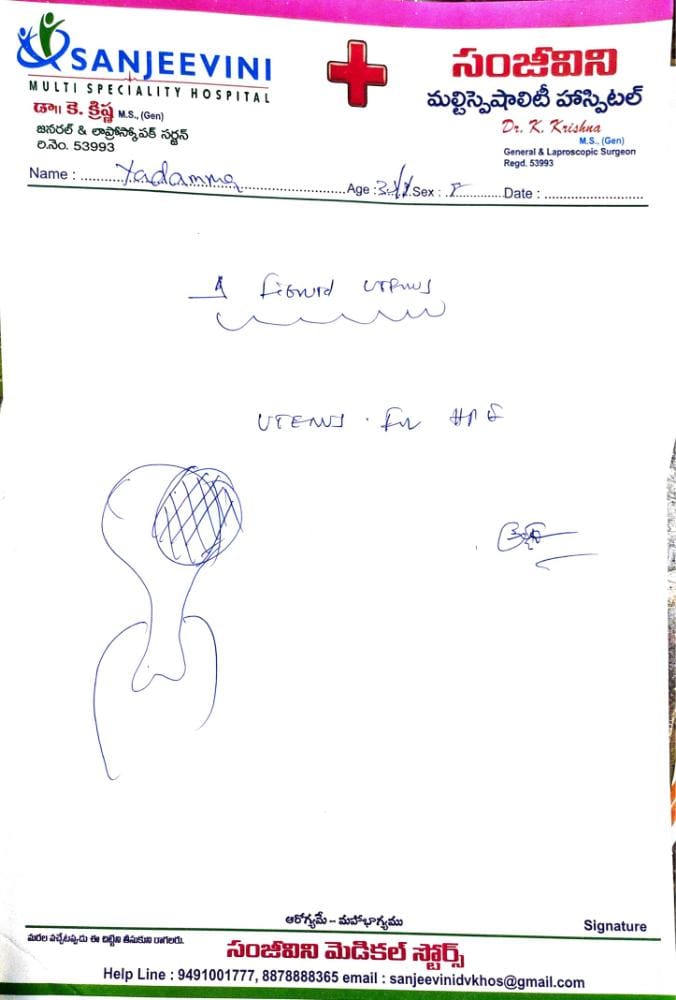 SANJEEVINI
MULTI SPECIALITY HOSPITAL
డా॥ కె. క్రిష్ణ M.S., (Gen)
జనరల్ & లాప్రోస్కోపక్ సర్జన్
రి.నెం. 53993
సంజీవిని
మల్టిస్పెషాలిటీ హాస్పిటల్
Dr. K. Krishna
M.S., (Gen)
General & Laproscopic Surgeon
Regd. 53993
Name : Yadamma Age : Sex : F Date :
uterus
UTERUS for HPE
ఆరోగ్యమే – మహాభాగ్యము
Signature
మరల వచ్చేటప్పుడు ఈ చిట్టిని తీసుకుని రాగలరు.
సంజీవిని మెడికల్ స్టోర్స్
Help Line : 9491001777, 8878888365 email : sanjeevinidvkhos@gmail.com